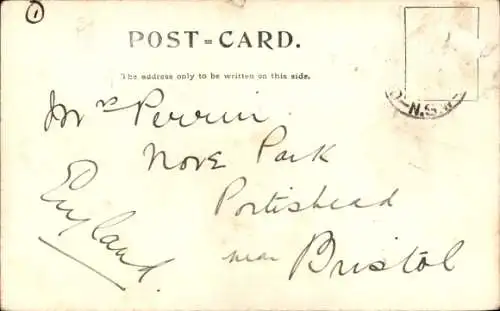 1
POST=CARD.
The address only to be written on this side.
Mrs Perrin
Nore Park
Portishead
near Bristol
England
N.S.W